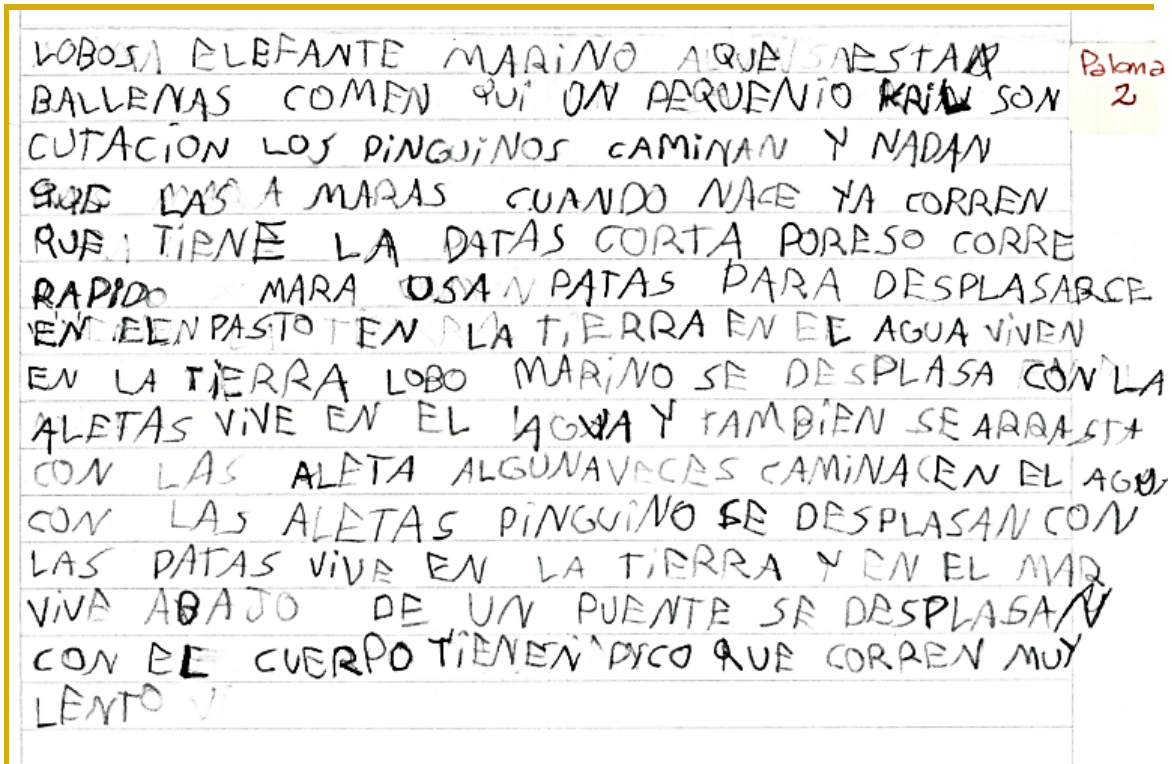 LOBOS ELEFANTE MARiNO AQUE ESTAN
BALLENAS COMEN QUi ON PEQUENiO KRiL SON
CUTACiON LOS PiNGUiNOS CAMiNAN Y NADAN
QUE LAS A MARAS CUANDO NACE YA CORREN
QUE TiENE LA PATAS CORTA PORESO CORRE
RAPiDO MARA USAN PATAS PARA DESPLASARCE
EN EL PASTO EN LA TiERRA EN EL AGUA ViVEN
EN LA TiERRA LOBO MARiNO SE DESPLASA CON LA
ALETAS ViVE EN EL AGUA Y TAMBiEN SE ARRASTA
CON LAS ALETA ALGUNAVECES CAMiNA EN EL AGU
CON LAS ALETAS PiNGUiNO SE DESPLASAN CON
LAS PATAS ViVE EN LA TiERRA Y EN EL MAR
ViVE ABAJO DE UN PUENTE SE DESPLASAN
CON EL CUERPO TiENEN PiCO QUE CORREN MUY
LENTO
Paloma
2